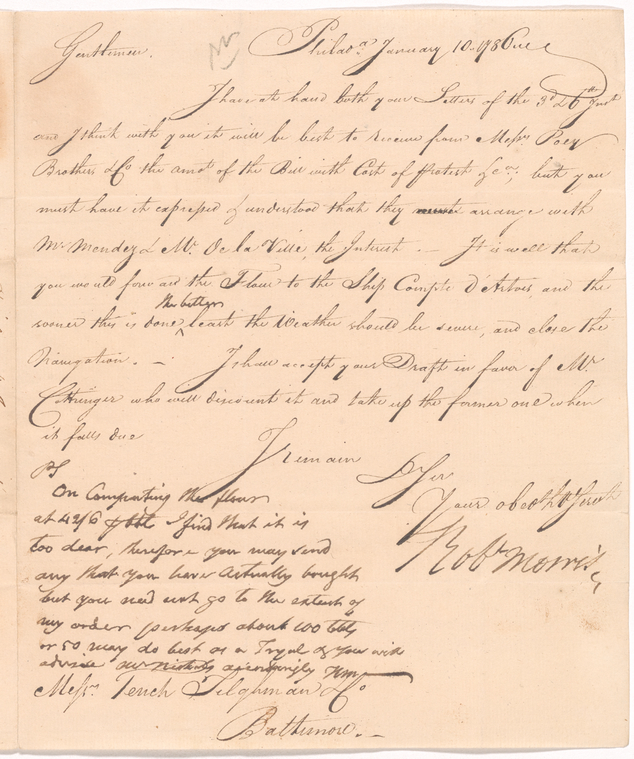 Gentlemen. Philad.a January 10. 1786
I have at hand both your Letters of the 3d & 6th Inst
and I think with you it will be best to receive from Messrs Poey
Brothers & Co the amot of the Bill with Cost of Protest &ca; but you
must have it expressed & understood that they arrange with
Mr. Mendez & Mr. De la Ville, the Interest. — It is well that
you would forward the Flour to the Ship Compte d'Artois, and the
the better
sooner this is done least the Weather should be severe, and close the
Navigation. — I shall accept your Draft in favor of Mr
Cottringer who will discount it and take up the former one when
it falls due
I remain
D Sir
Your obedt hble Servt
Robt Morris
PS
On Computing the flour
at 42/6 I find that it is
too dear, therefore you may send
any that you have actually bought
but you need not go to the extent of
my order perhaps about 100 bbls
or 50 may do best as a Tryal & you will
advise accordingly RM
Messrs. Tench Tilghman & Co
Baltimore. —